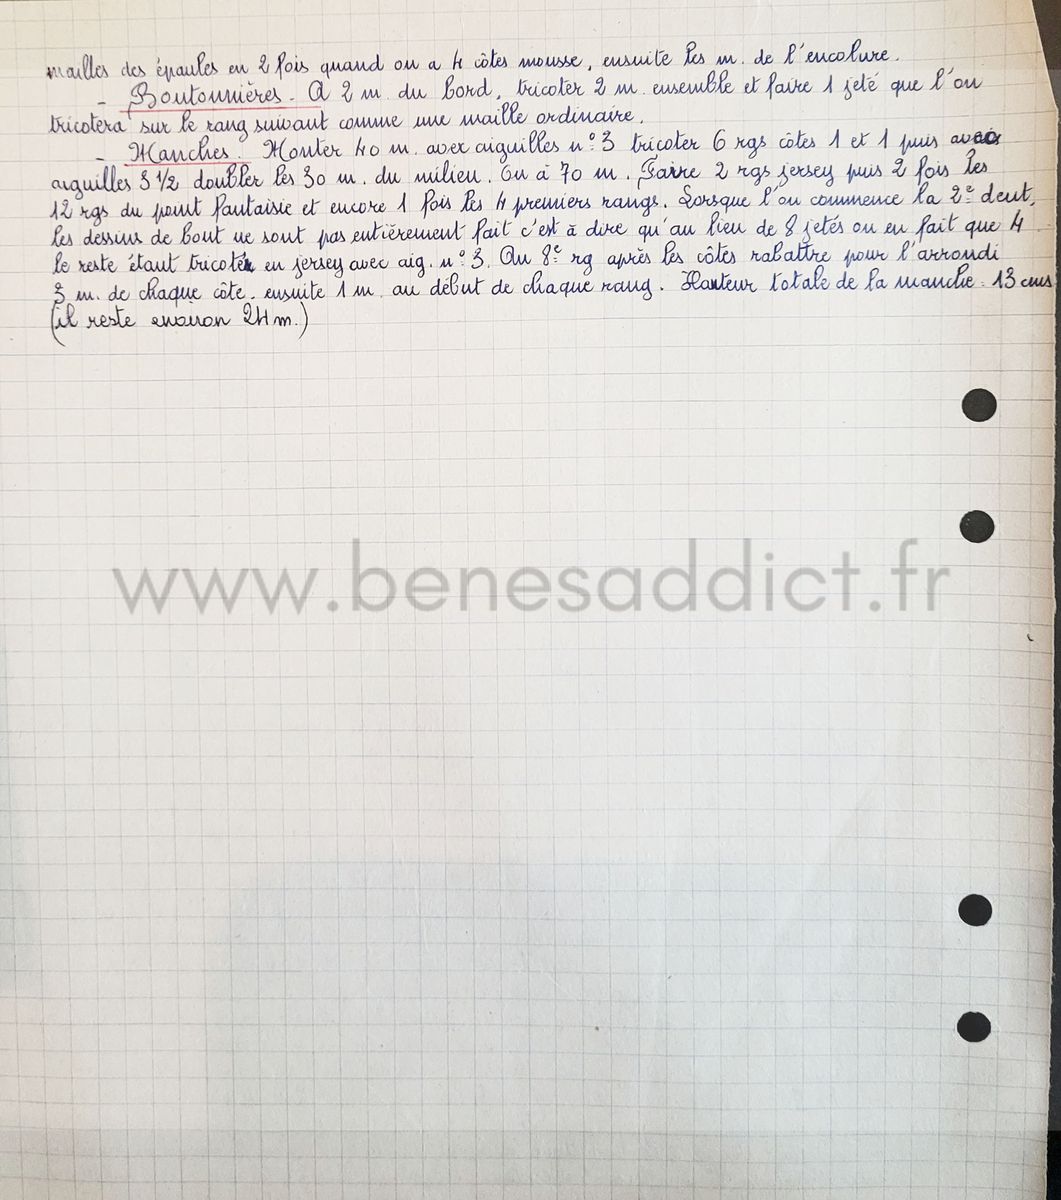 mailles des épaules en 2 fois quand on a 4 côtes mousse, ensuite les m. de l'encolure.
- Boutonnières. A 2 m. du bord, tricoter 2 m. ensemble et faire 1 jeté que l'on
tricotera sur le rang suivant comme une maille ordinaire.
- Manches. Monter 40 m. avec aiguilles n° 3 tricoter 6 rgs côtes 1 et 1 puis avec
aiguilles 3 1/2 doubler les 30 m. du milieu. On à 70 m. Faire 2 rgs jersey puis 2 fois les
12 rgs du point fantaisie et encore 1 fois les 4 premiers rangs. Lorsque l'on commence la 2e dent,
les dessins de bout ne sont pas entièrement fait c'est à dire qu'au lieu de 8 jetés on en fait que 4
le reste étant tricoté en jersey avec aig. n° 3. Au 8e rg après les côtes rabattre pour l'arrondi
3 m. de chaque côte. ensuite 1 m. au début de chaque rang. Hauteur totale de la manche : 13 cms
(il reste environ 24 m.)
www.benesaddict.fr